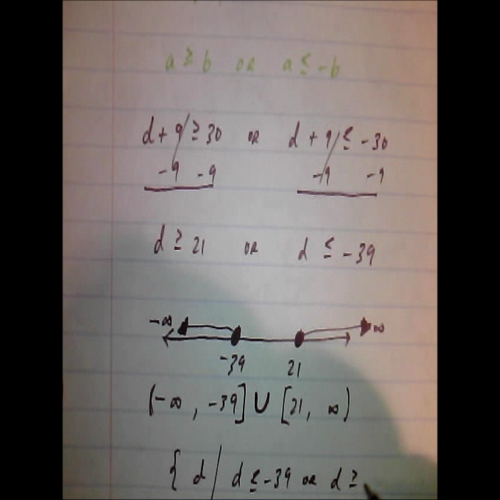 a ≥ b or a ≤ -b
d + 9 ≥ 30 or d + 9 ≤ -30
-9 -9 -9 -9
d ≥ 21 or d ≤ -39
-∞ ∞
-39 21
(-∞, -39] ∪ [21, ∞)
{ d | d ≤ -39 or d ≥